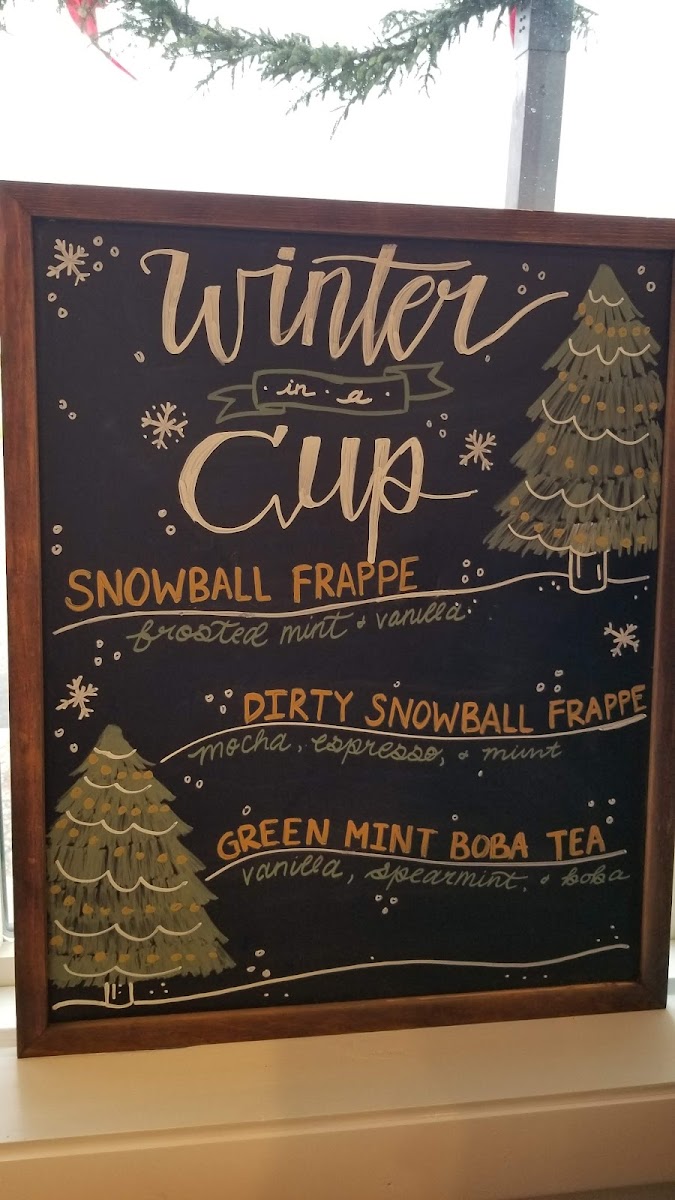 Winter
in a
Cup
SNOWBALL FRAPPE
frosted mint & vanilla
DIRTY SNOWBALL FRAPPE
mocha, espresso, & mint
GREEN MINT BOBA TEA
vanilla, spearmint, & boba